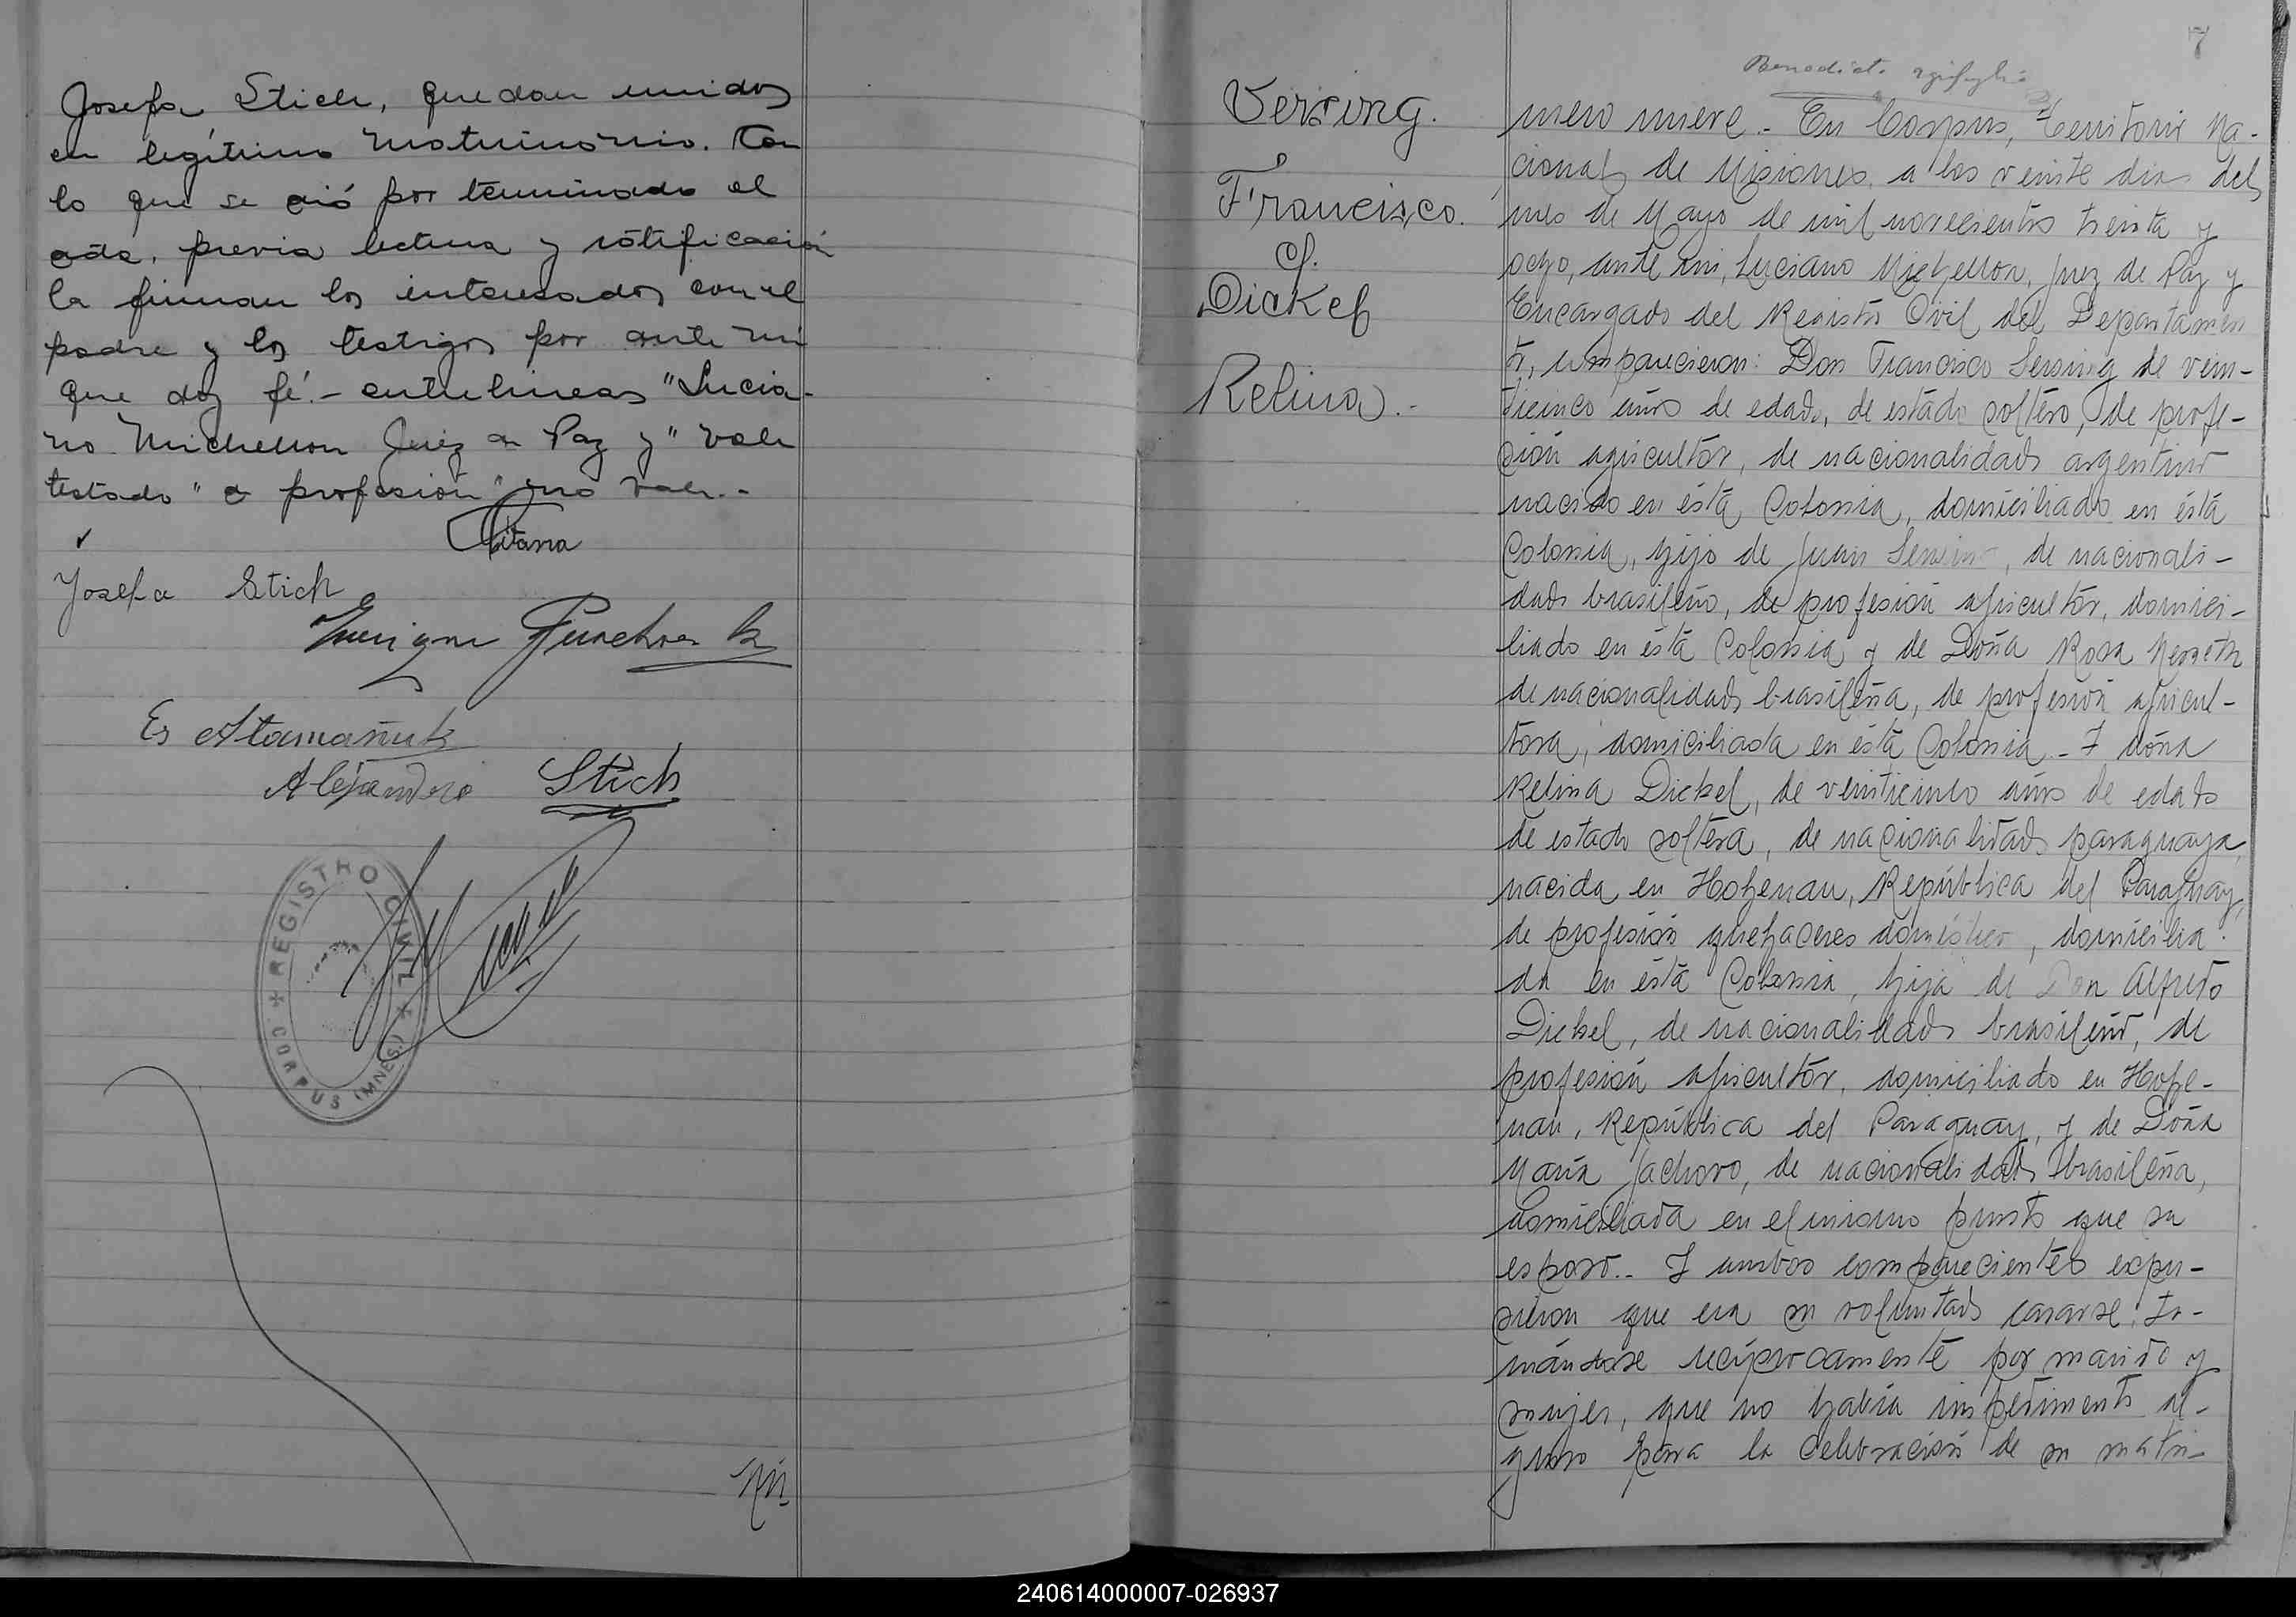 Josefa Stich, quedan unidos
en legítimo matrimonio. Con
lo que se dió por terminado el
acta, previa lectura y ratificación
la firman los interesados con el
padre y los testigos por ante mi
que doy fé.- entrelineas "Lucia-
no Michellon Juez de Paz y" vale
testado " profesión" no vale.-
Josefa Stich
Es Atamañuk
Alejandro Stich
REGISTRO CIVIL
CORPUS (MNES.)
7
Benedicta
Versing.
Francisco.
c/.
Dickel
Relina.-
mero nueve.- En Corpus, Territorio Na-
cional de Misiones, a los veinte dias del
mes de Mayo de mil novecientos treinta y
ocho, ante mi, Luciano Michellon, Juez de Paz y
Encargado del Registro Civil del Departamen
to, comparecieron: Don Francisco Versing de vein-
ticinco años de edad, de estado soltero, de profe-
sión agricultor, de nacionalidad argentino
nacido en ésta Colonia, domiciliado en ésta
Colonia, hijo de Juan, de nacionali-
dad brasileño, de profesión agricultor, domici-
liado en ésta Colonia y de Doña Rosa
de nacionalidad brasileña, de profesión agricul-
tora, domiciliada en ésta Colonia.- Y doña
Relina Dickel, de veinticinco años de edad
de estado soltera, de nacionalidad paraguaya,
nacida en Hohenau, República del Paraguay,
de profesión quehaceres domésticos, domicilia-
da en ésta Colonia, hija de Don Alfredo
Dickel, de nacionalidad brasileño, de
profesión agricultor, domiciliado en Hohe-
nau, República del Paraguay, y de Doña
María Jachovo, de nacionalidad brasileña,
domiciliada en el mismo punto que su
esposo.- Y ambos comparecientes expu-
sieron que era su voluntad casarse, to-
mándose recíprocamente por marido y
mujer, que no había impedimento al-
guno para la celebración de su matri-
240614000007-026937